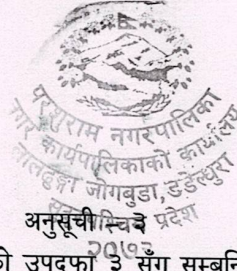 परशुराम नगरपालिका
नगर कार्यपालिकाको कार्यालय
जोगबुडा, डडेल्धुरा
अनुसूची
३
प्रदेश
२०७३
को उपदफा ३ सँग सम्बन्धि